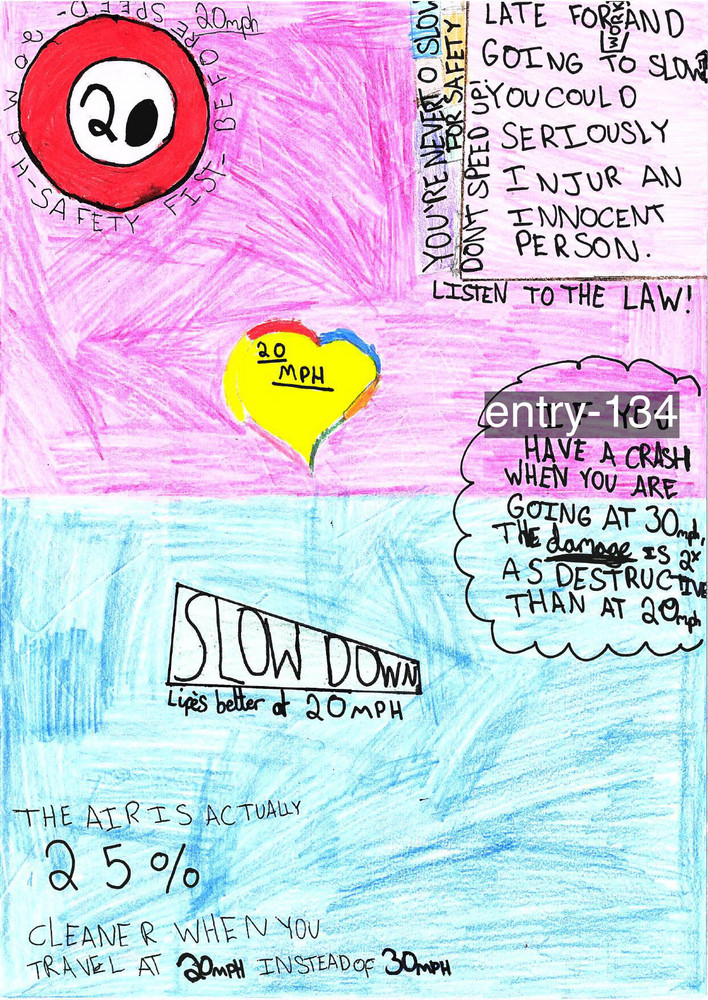 20mph
20
20MPH-SAFETY FIST-BEFORE SPEED-
YOU'RE NEVER TO SLOW
FOR SAFETY
DON'T SPEED UP!
LATE FOR WORK AND
GOING TO SLOW
YOU COULD
SERIOUSLY
INJUR AN
INNOCENT
PERSON.
LISTEN TO THE LAW!
20
MPH
entry-134
IF YOU
HAVE A CRASH
WHEN YOU ARE
GOING AT 30mph,
THE damage IS 2x
AS DESTRUCTIVE
THAN AT 20mph
SLOW DOWN
Life's better at 20MPH
THE AIR IS ACTUALLY
25%
CLEANER WHEN YOU
TRAVEL AT 20MPH INSTEAD OF 30MPH